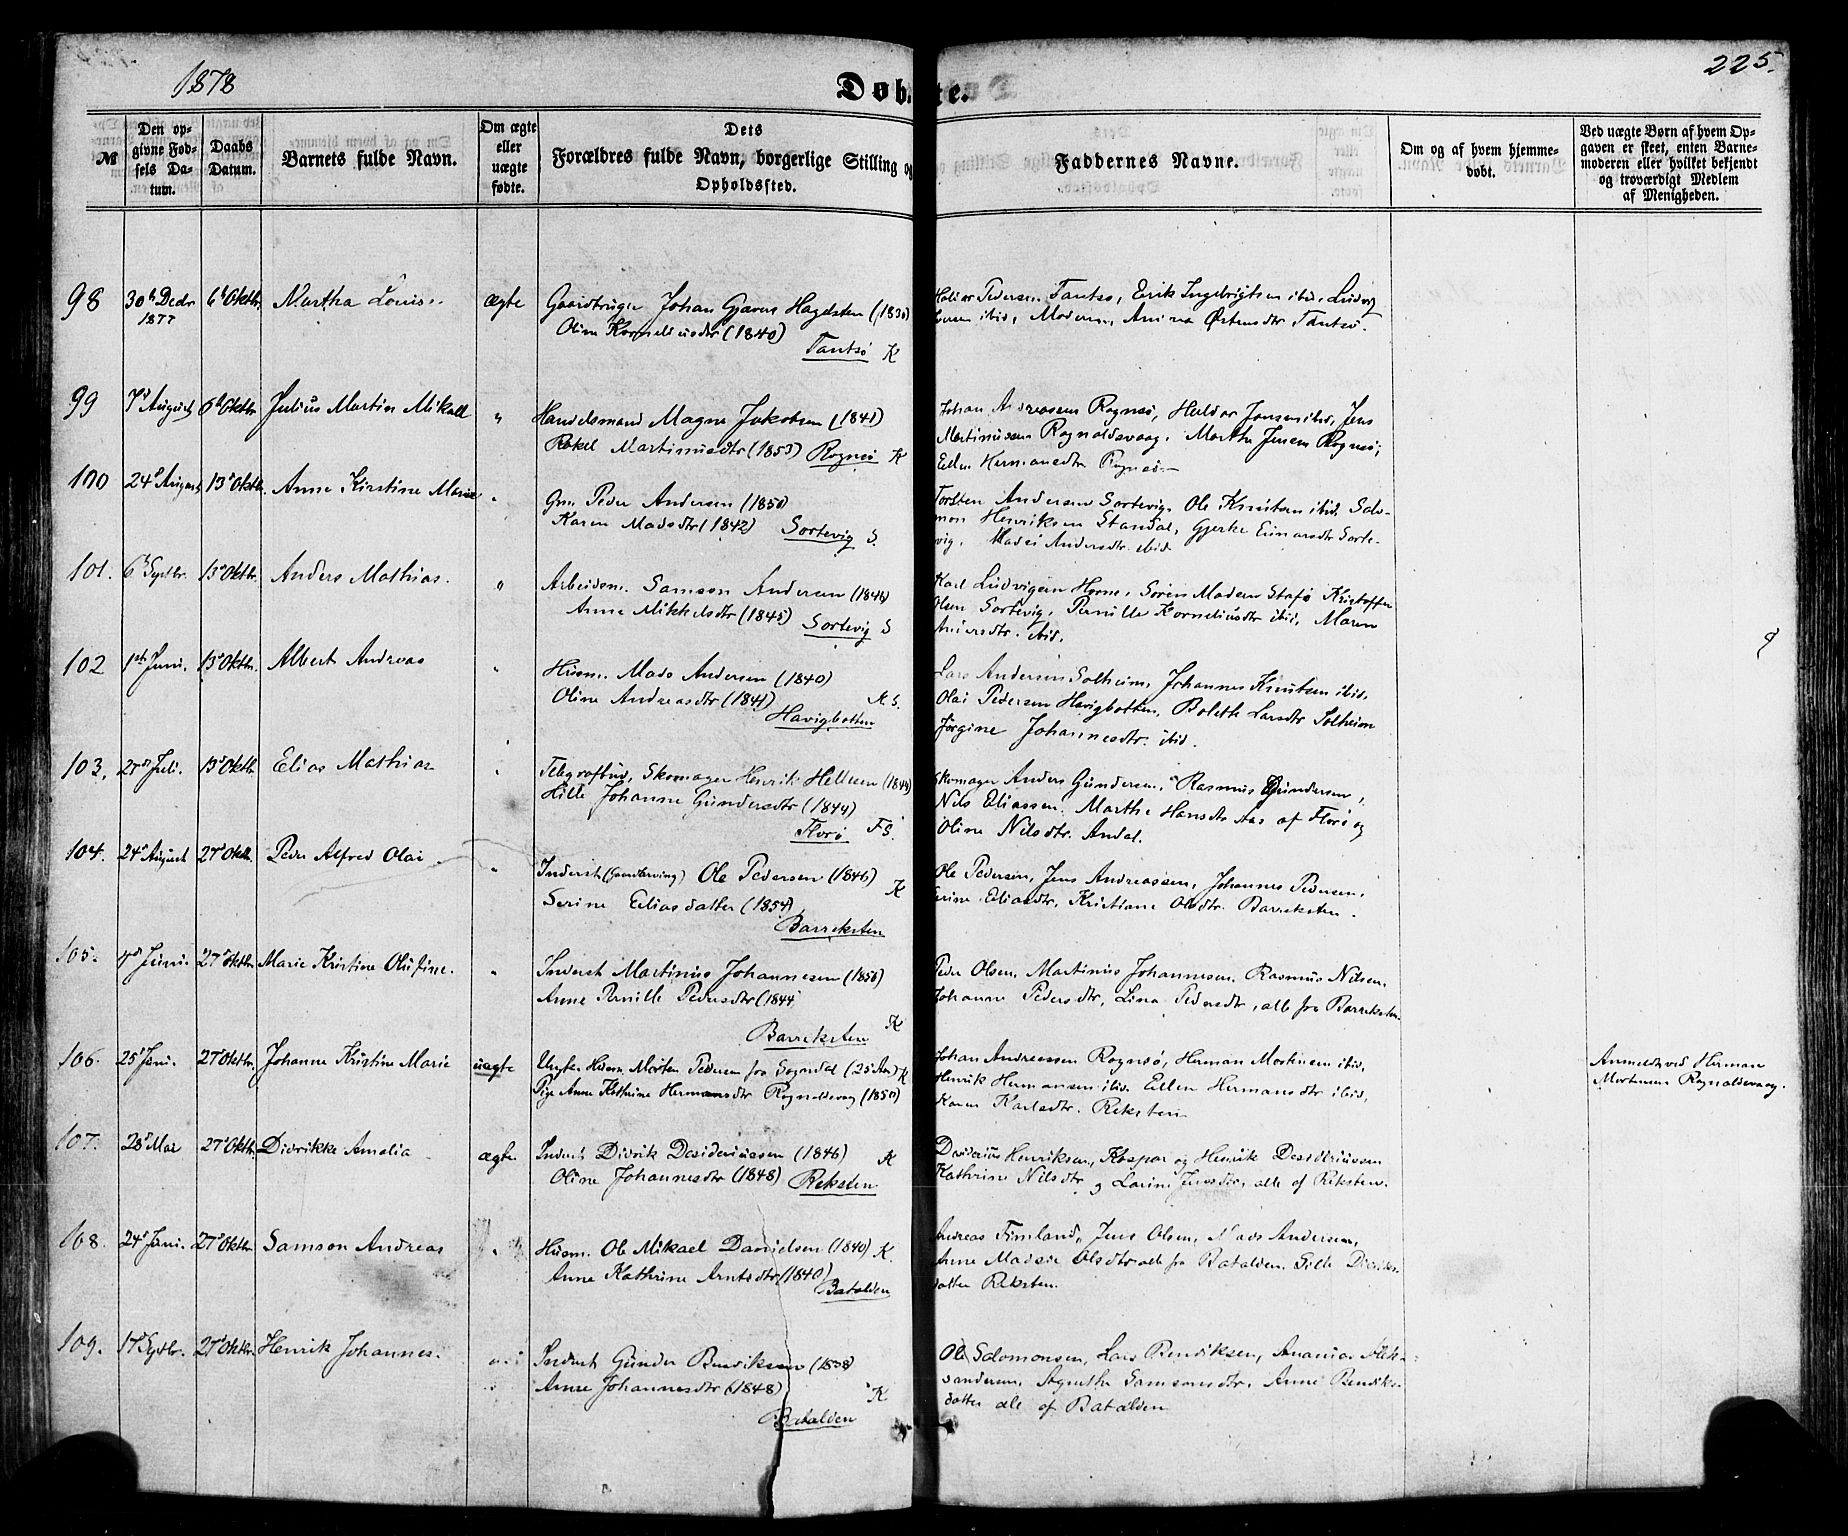 1878
Døbte.
225.
№
Den opgivne Fødsels Datum.
Daabs Datum.
Barnets fulde Navn.
Om ægte eller uægte fødte.
Dets Forældres fulde Navn, borgerlige Stilling og Opholdssted.
Faddernes Navne.
Om og af hvem hjemmedøbt.
Ved uægte Børn af hvem Opgaven er skeet, enten Barnemoderen eller hvilket bekjendt og troværdigt Medlem af Menigheden.
98 30 Decbr 1877 6 Oktbr. Martha Louise ægte Gaardbruger Johan
Oline Korneliusdtr (1840)
Tansø K
Pedersen Tansø, Erik Ingebrigtsen ibid, Ludvig
ibid, Moderen, Østensdtr Tansø.
99 7 August 6 Oktbr. Julius Martin Mikael " Handelsmand Magne Jakobsen (1841)
Rakel Martinusdtr (1853) Rognsø K
Johan Andreassen Rognsø, Jensen ibid, Jens
Martinussen Rognaldsvaag, Martha Jensen Rognsø,
Ellen Hermansdtr Rognsø.
100 24 August 13 Oktbr. Anne Kirstine Marie " Gm. Peder Andersen (1850)
Karen Madsdtr (1842) Sortevig S.
Torsten Andersen Sortevig, Ole Knutsen ibid. Salo-
mon Henriksen Standal, Gjerke Einarsdtr Sorte-
vig, Andersdtr ibid.
101. 6 Septbr. 13 Oktbr. Anders Mathias. " Arbeidsm. Samson Andersen (1848)
Anne Mikkelsdtr (1845) Sortevig S
Karl Ludvigsen Horne, Søren Madsen Kristoffer
Olsen Sortevig, Pernille Korneliusdtr ibid, Maren
Andersdtr. ibid.
102 1 Juni. 13 Oktbr. Albert Andreas " Husm. Mads Andersen (1840)
Oline Andreasdtr (1841)
Havigbotten
Lars Andersen Solheim, Johannes Knutsen ibid,
Olai Pedersen Havigbotten, Boleth Larsdtr Solheim
Jørgine Johannesdtr. ibid.
103. 27 Juli. 13 Oktbr. Elias Mathias " Telegrafbud, Skomager Henrik (1844)
Hille Johanne Gundersdtr (1844)
Florø F S.
Skomager Anders Gundersen, Rasmus Gundersen,
Nils Eliassen, Marthe Hansdtr af Florø og
Oline Nilsdtr.
104. 24 August 27 Oktbr. Peder Alfred Olai " Inderst Ole Pedersen (1846)
Serine Eliasdatter (1854) K
Barreksten
Ole Pedersen, Jens Andreassen, Johannes Pedersen,
Eliasdtr, Kristiane Olsdtr. Barreksten.
105. 4 Juni. 27 Oktbr. Marie Kristine Olufine. " Inderst Martinus Johannesen (1850)
Anne Pernille Pedersdtr (1844)
Barreksten K
Peder Olsen, Martinus Johannesen, Rasmus Nilsen,
Johanne Pedersdtr, Lina Pedersdtr, alle fra Barreksten.
106. 25 Juni. 27 Oktbr. Johanne Kristine Marie uægte Ungk. Morten Pedersen fra Sogndal (25 Aar) K
Pige Anne Kathrine Hermansdtr Rognaldsvaag (1850)
Johan Andreassen Rognsø, Herman Mortensen ibid,
Henrik Hermansen ibid, Ellen Hermansdtr ibid,
Karen Karlsdtr. Reksten
Anmeldt ved Herman
Mortensen Rognaldsvaag.
107. 28 Mai 27 Oktbr. Didrikke Amalia ægte. Inderst Didrik Desideriussen (1846)
Oline Johannesdtr (1848) Reksten K
Desiderius Henriksen, Kaspar og Henrik Desideriussen
Kathrine Nilsdtr og Larine Jensdtr, alle af Reksten.
108. 24 Juni. 27 Oktbr. Samson Andreas " Husm. Ole Mikael Danielsen (1840) K.
Anne Kathrine Arntsdtr (1840)
Batalden
Andreas Jens Olsen, Mads Andersen,
Anne Olsdtr alle fra Batalden. Didriks-
datter Reksten.
109. 17 Septbr. 27 Oktbr. Henrik Johannes. Inderst Gunder Bendiksen (1838)
Anne Johannesdtr (1848)
K
Batalden
Ole Salomonsen, Lars Bendiksen, Ananias Alek-
sandersen, Agnethe Samsonsdtr, Anne Bendiks-
datter alle af Batalden